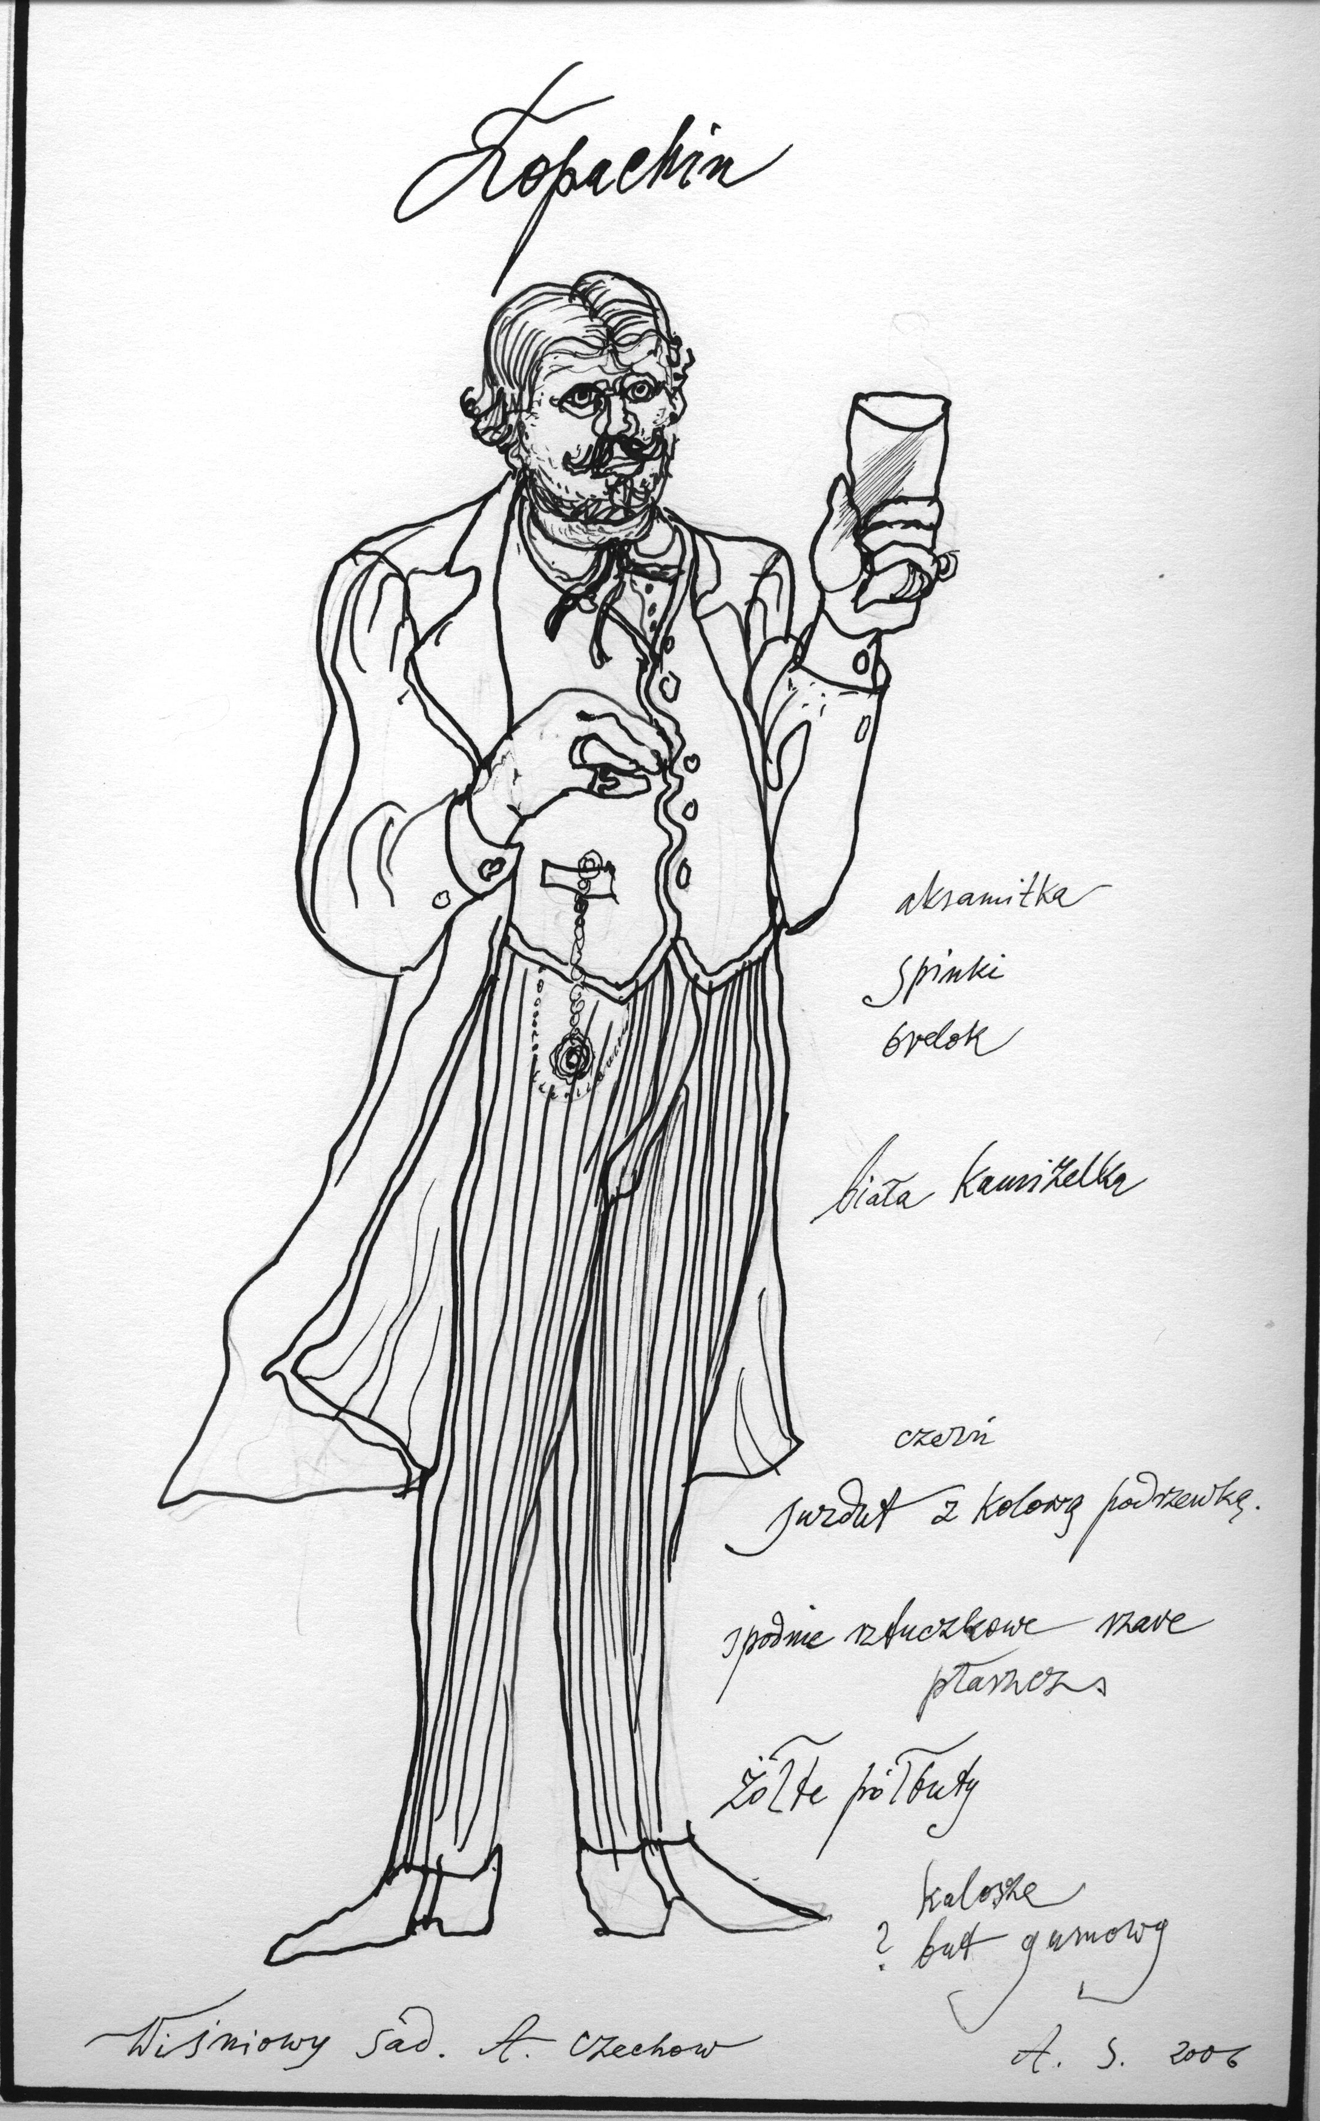 Łopachin
aksamitka
spinki
brelok
biała kamizelka
czerń
surdut z kolorą podszewką.
spodnie sztuczkowe szare
płaszcz
żółte półbuty
kalosze
? but gumowy
Wiśniowy sad. A. Czechow
A. S. 2006